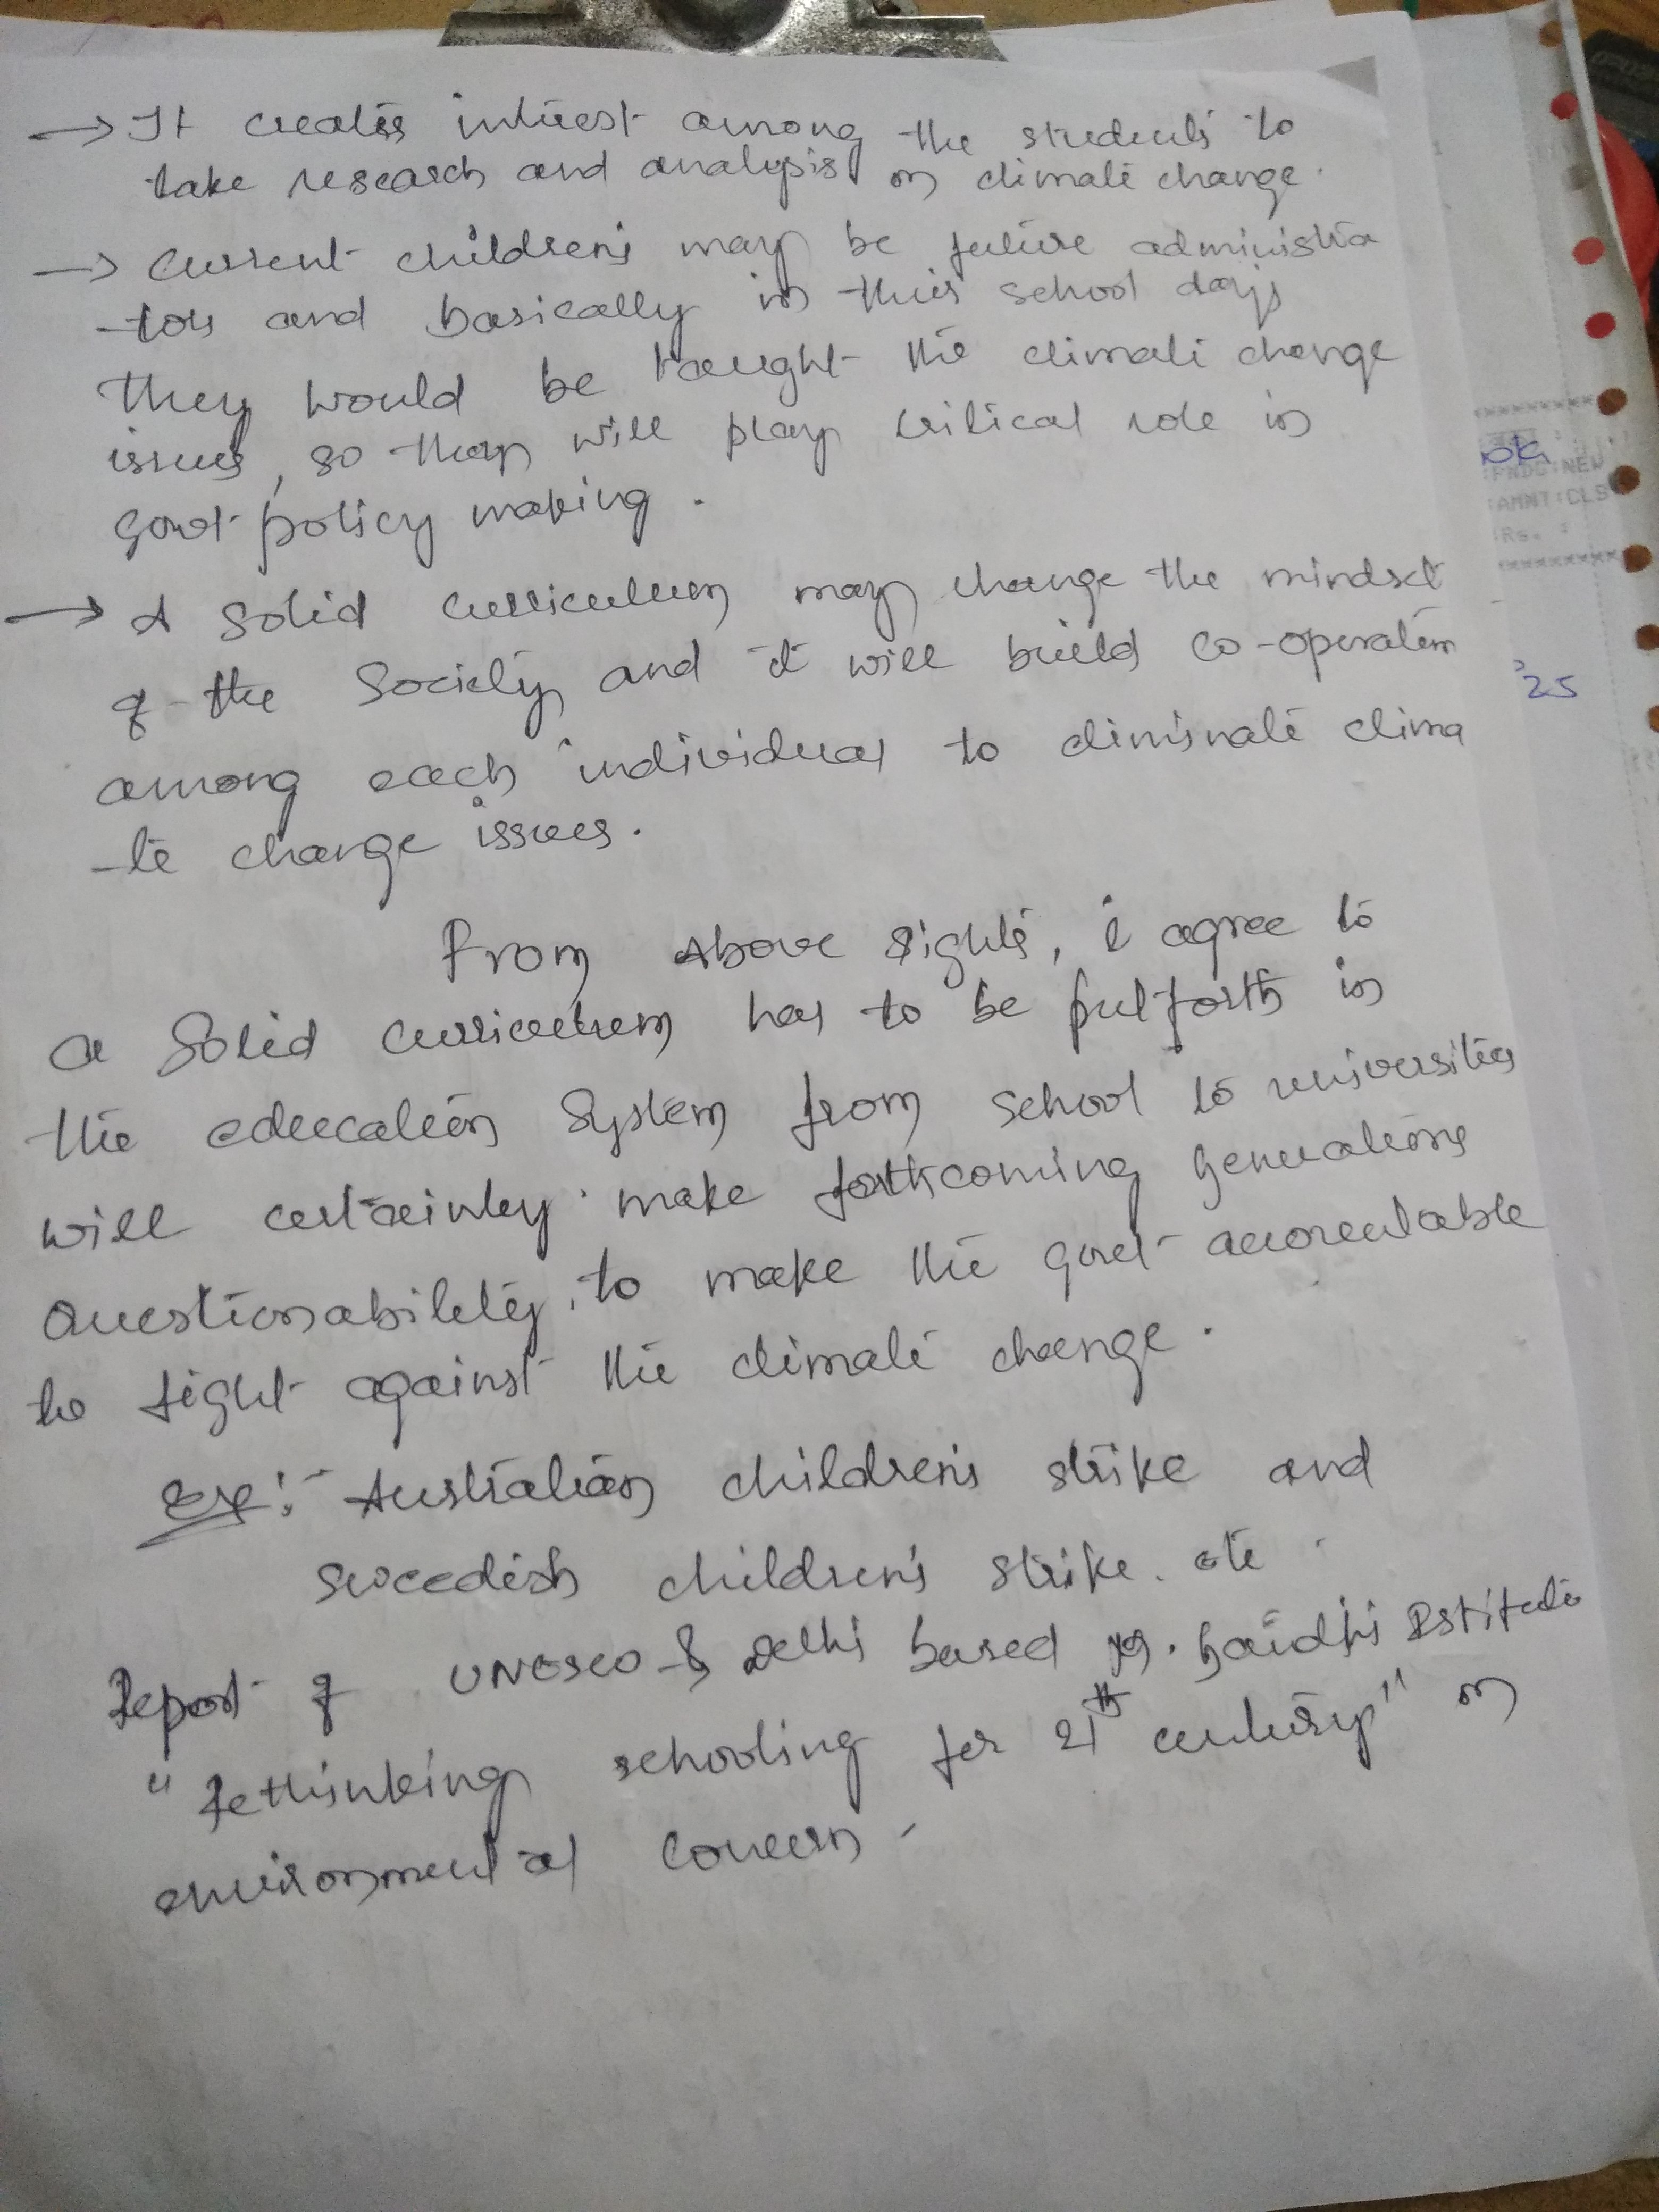 → It creates interest among the students to
take research and analysis on climate change.
→ Current children's may be future administra
-tors and basically in this school days
they would be taught the climate change
issues, so they will play critical role in
govt policy making.
→ A solid curriculum may change the mindset
of the society and it will build co-operation
among each individual to eliminate clima
-te change issues.
From Above sights, i agree to
a solid curriculum has to be put forth in
the education system from school to universities
will certainley make forthcoming generations
Questionability, to make the govt accountable
to fight against the climate change.
Ex:- Australian children's strike and
Sweedish children's strike. etc.
Report of UNESCO & Delhi based Gandhi Istitute
"Rethinking schooling for 21th century" on
environmental concern -
ok
:PNDG:NEW
:AMNT:CLS
:Rs. :
25